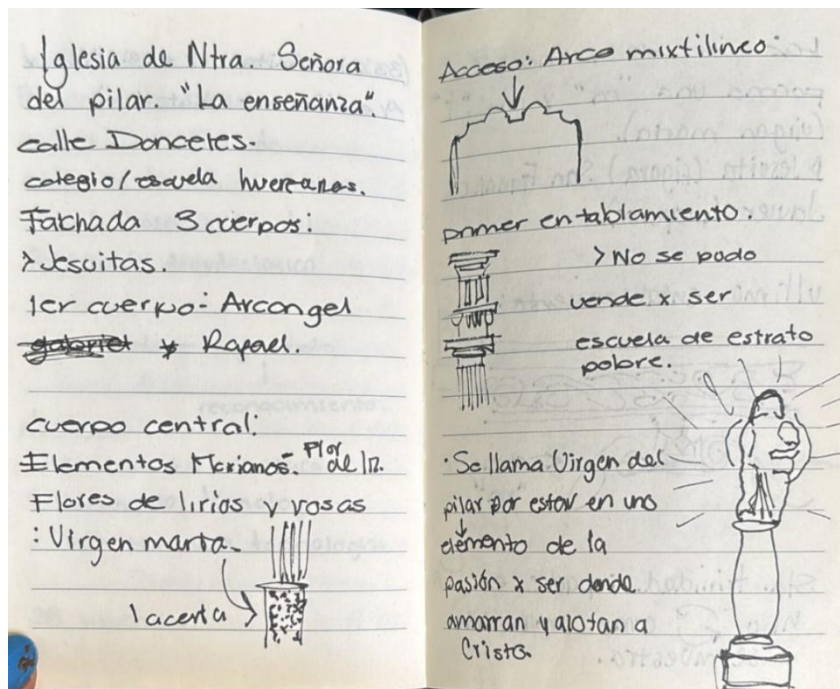 Iglesia de Ntra. Señora
del pilar. "La enseñanza".
calle Donceles.
colegio/escuela huerfanas.
Fatchada 3 cuerpos:
> Jesuitas.
1er cuerpo: Arcangel
gabriel y Rafael.
cuerpo central:
Elementos Marianos- Flor de
Flores de lirios y rosas
: Virgen maria
Acceso: Arco mixtilineo
primer entablamiento:
> No se pudo
vende x ser
escuela de estrato
pobre.
· Se llama Virgen del
pilar por estar en uno
elemento de la
pasión x ser donde
amarran y azotan a
Cristo.